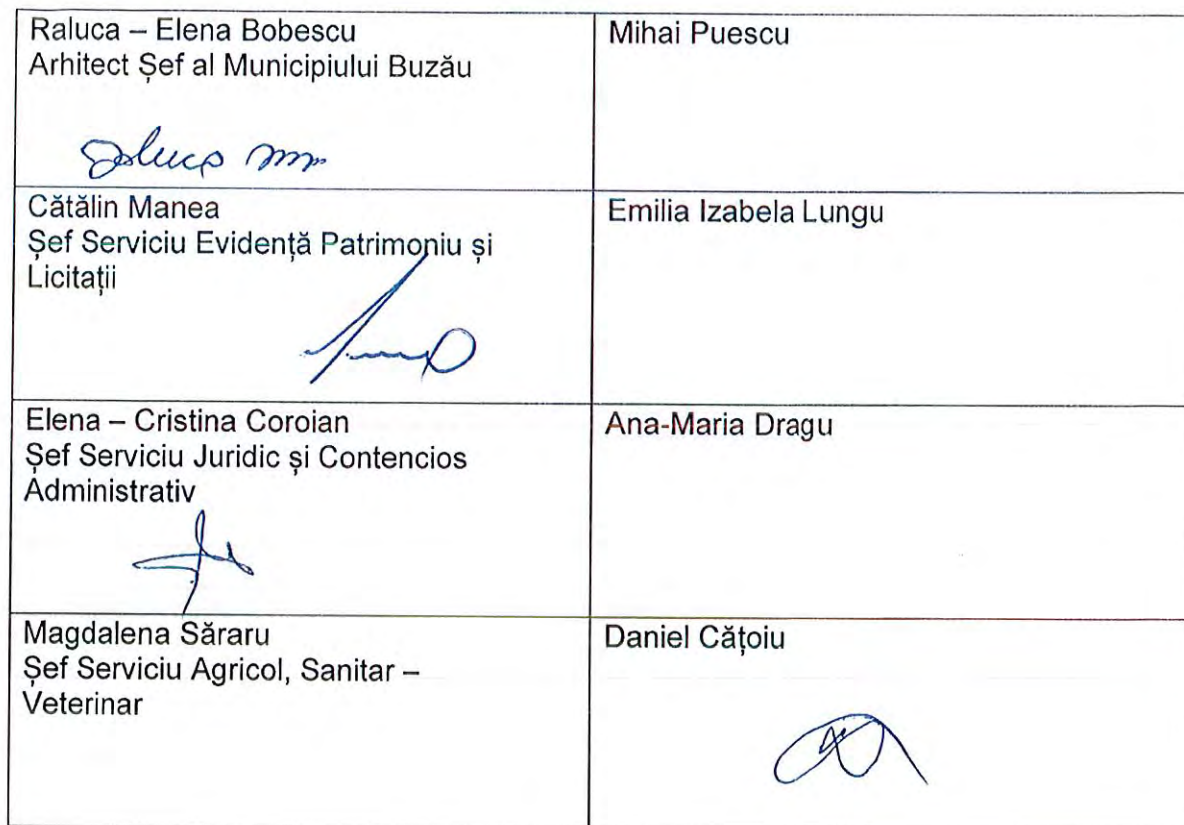 Raluca – Elena Bobescu
Arhitect Șef al Municipiului Buzău
Mihai Puescu
Cătălin Manea
Șef Serviciu Evidență Patrimoniu și
Licitații
Emilia Izabela Lungu
Elena – Cristina Coroian
Șef Serviciu Juridic și Contencios
Administrativ
Ana-Maria Dragu
Magdalena Săraru
Șef Serviciu Agricol, Sanitar –
Veterinar
Daniel Cățoiu